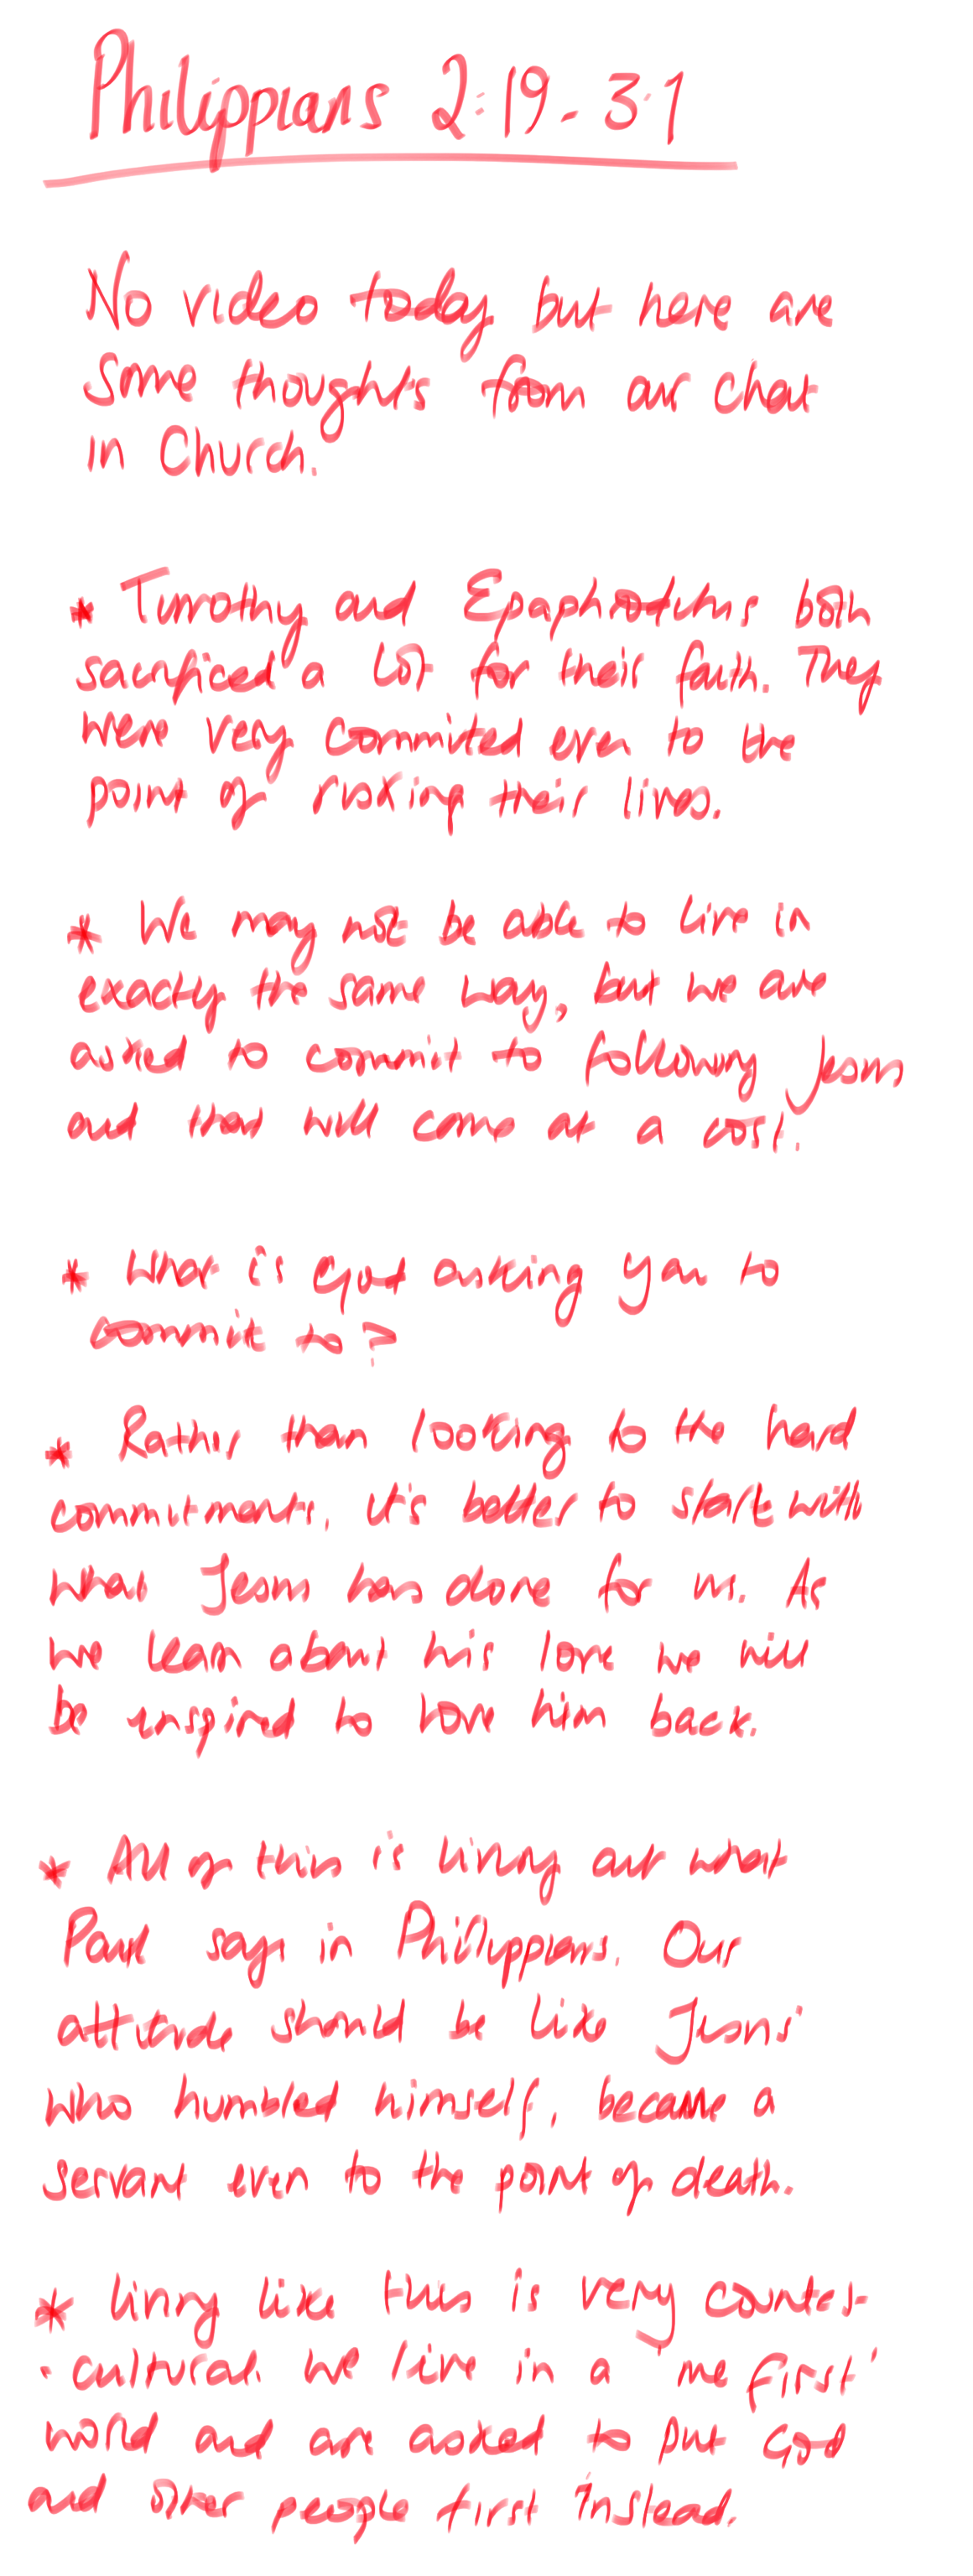 Philippians 2:19-3:1
No video today but here are
some thoughts from our chat
in Church.
* Timothy and Epaphroditus both
sacrificed a lot for their faith. They
were very commited even to the
point of risking their lives.
* We may not be able to live in
exactly the same way, but we are
asked to commit to following Jesus
and that will come at a cost.
* What is God asking you to
commit to?
* Rather than looking to the hard
commitments, it's better to start with
what Jesus has done for us. As
we learn about his love we will
be inspired to love him back.
* All of this is living out what
Paul says in Philippians. Our
attitude should be like Jesus'
who humbled himself, became a
servant even to the point of death.
* living like this is very counter-
-cultural. We live in a 'me first'
world and are asked to put God
and other people first instead.